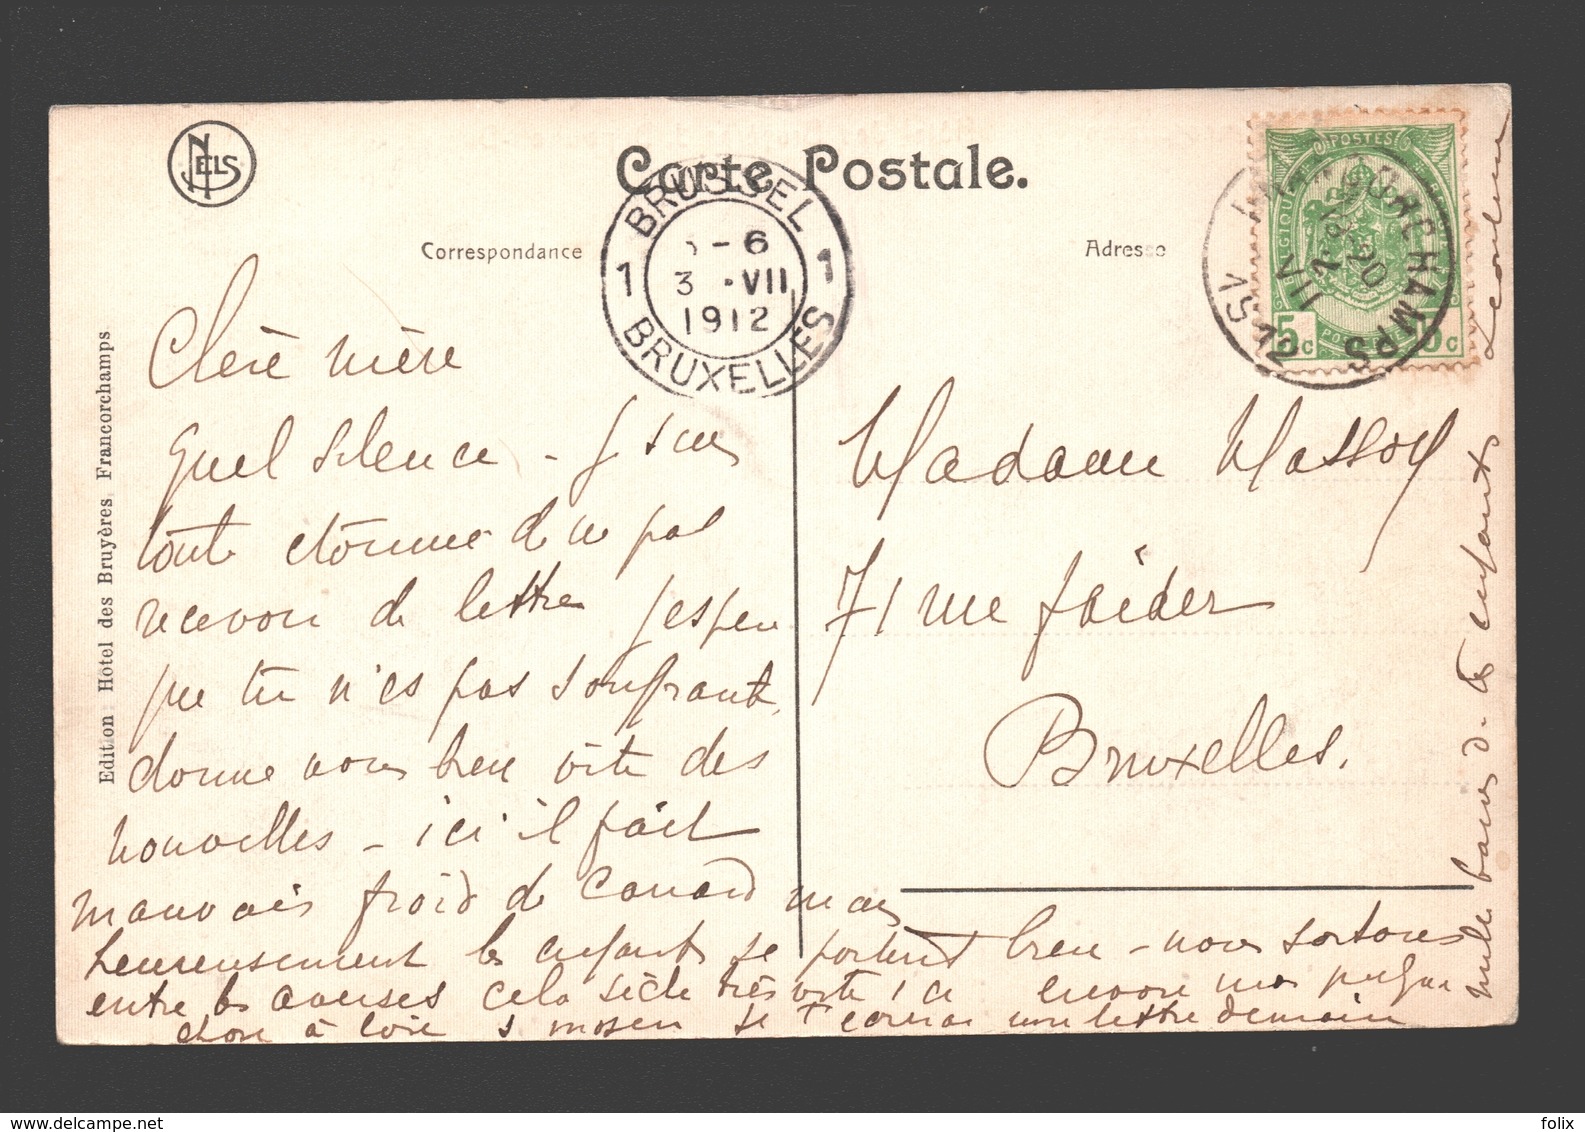 NELS
Carte Postale.
Correspondance
Adresse
BRUSSEL
1 - 6 1
3 . VII
1912
BRUXELLES
FRANCORCHAMPS
15
VII
12
POSTES
BELGIQUE
5c 5c
Edition : Hôtel des Bruyères, Francorchamps
Chère mère
Quel silence - Je suis
toute étonnée de ne pas
recevoir de lettre j'espère
que tu n'es pas souffrante,
donne nous bien vite des
nouvelles - ici il fait
mauvais froid de canard mais
heureusement les enfants se portent bien - nous sortons
entre les averses cela sèche très vite ici encore mos
chose à loie je t'écrirai une lettre demain
mille baisers de tes enfants
Léontine
Madame Massoy
71 rue Faider
Bruxelles.
folix